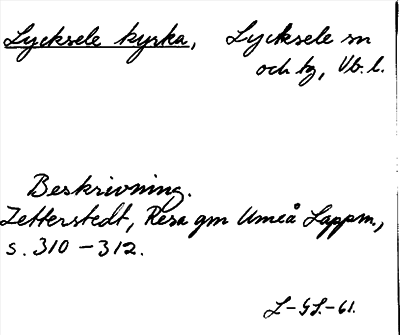 Lycksele kyrka, Lycksele sn
och by, Vb. l.
Beskrivning.
Zetterstedt, Resa gm Umeå Lappm.,
s. 310 – 312.
L-GS.-61.